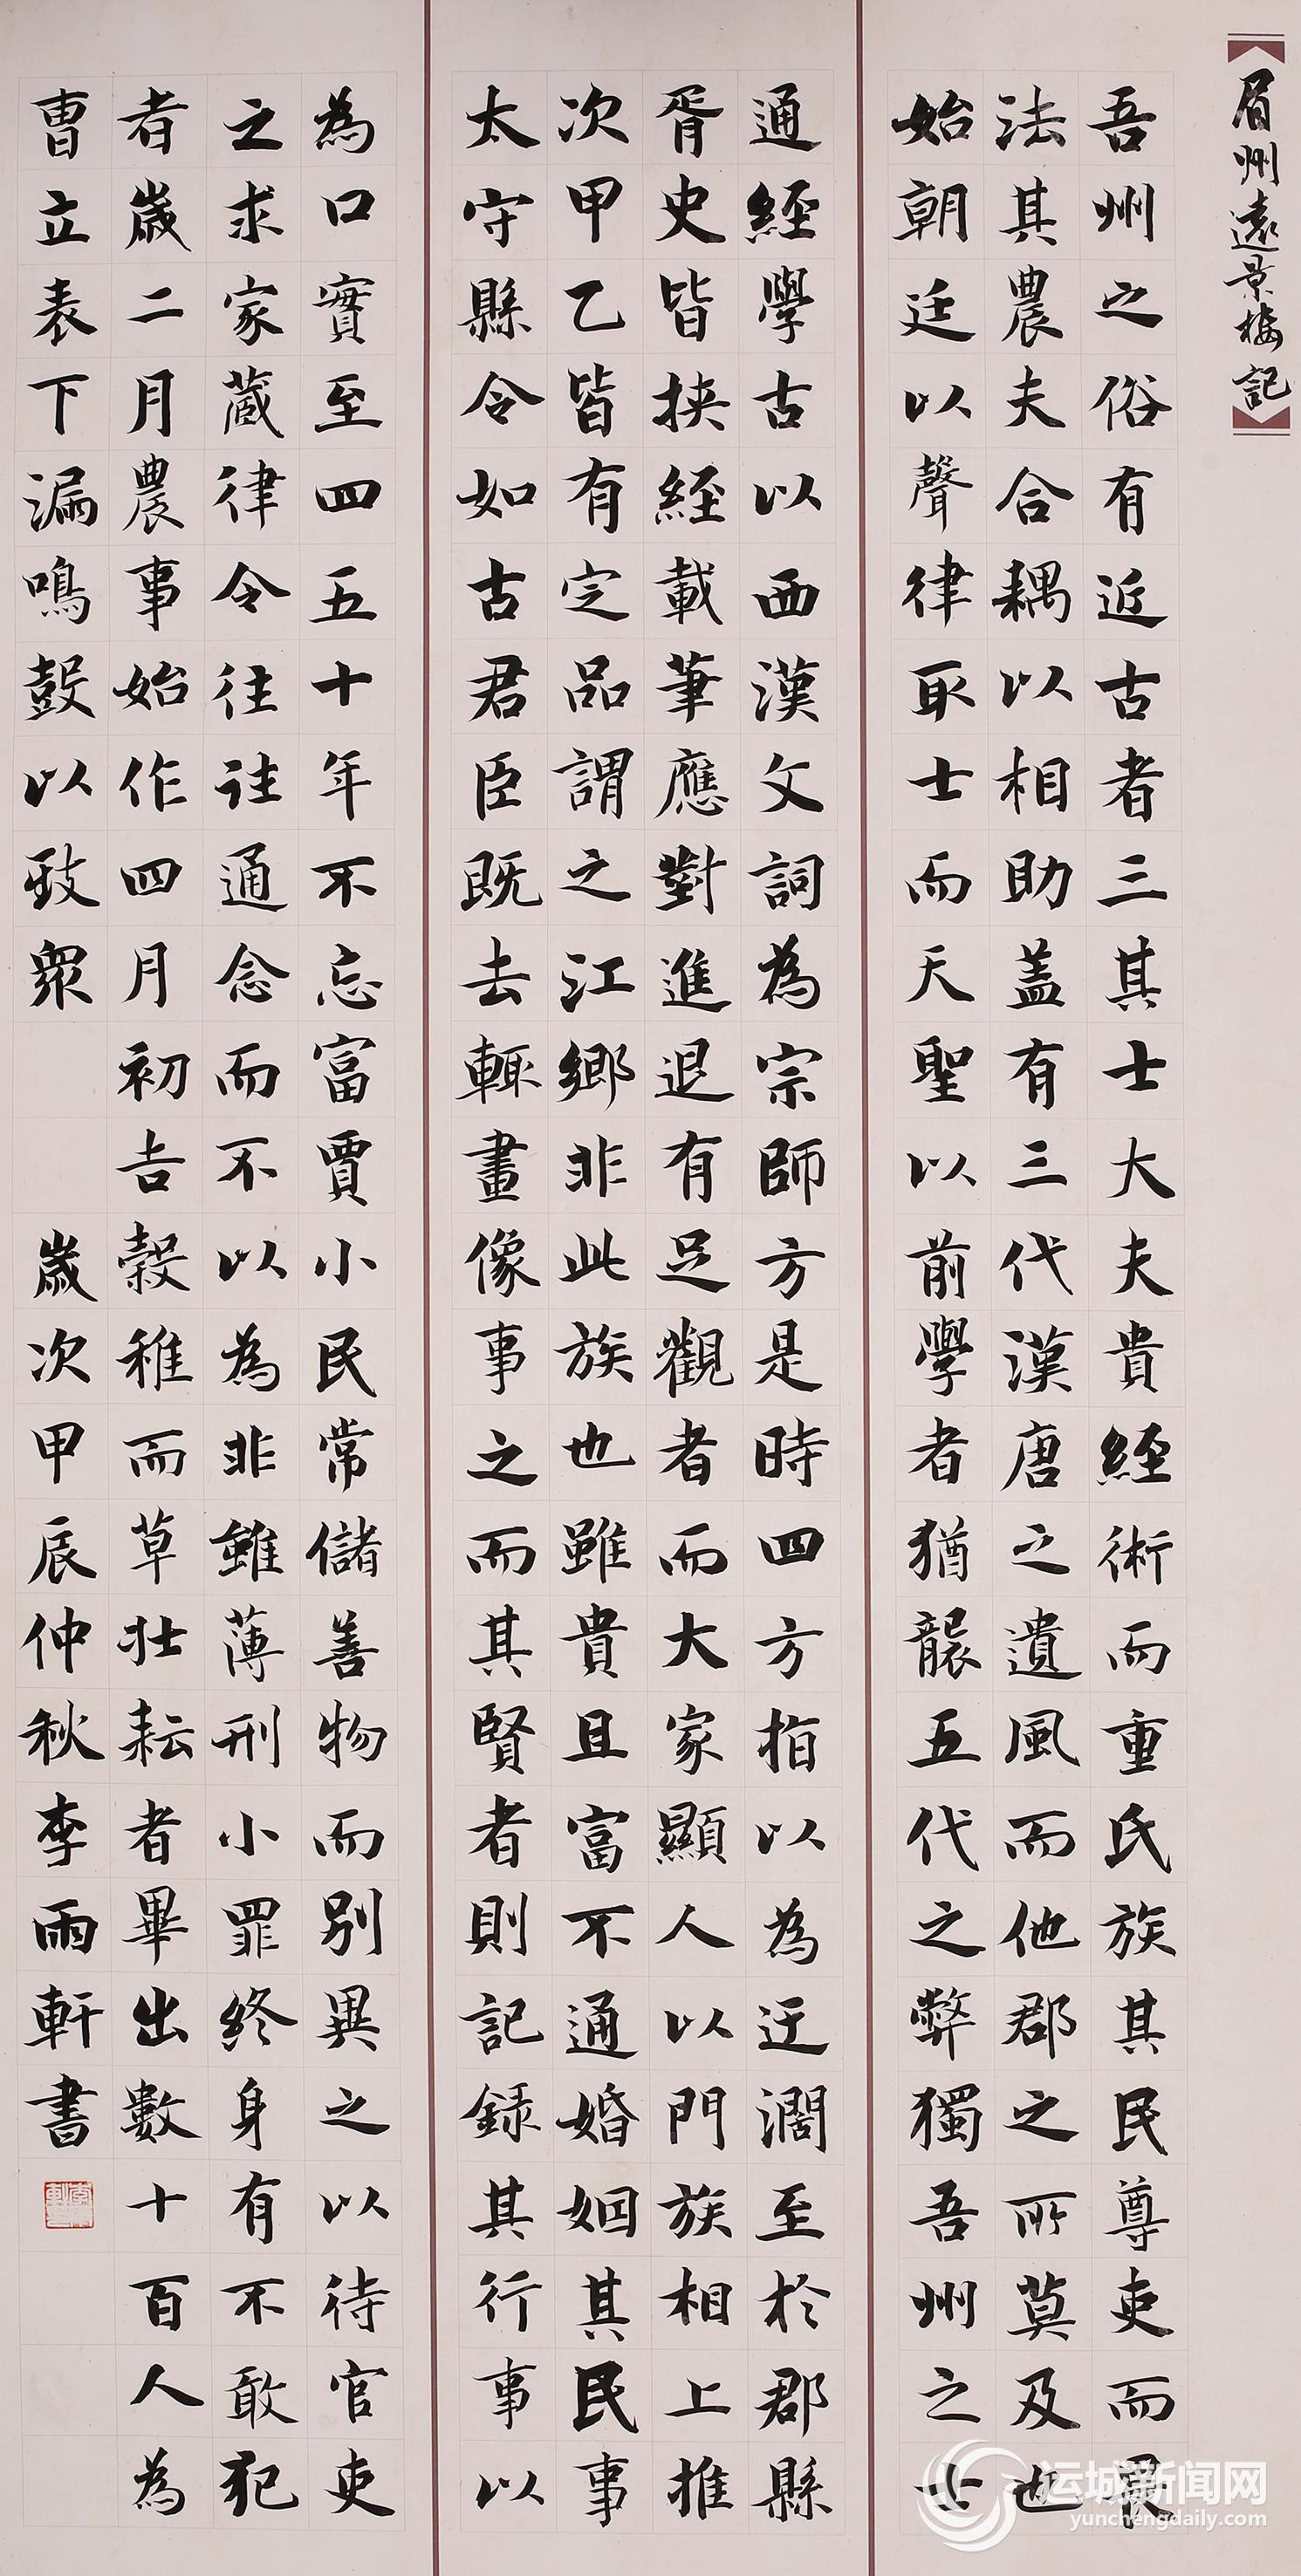 眉州遠景樓記
吾州之俗有近古者三其士大夫貴經術而重氏族其民尊吏而畏
法其農夫合耦以相助蓋有三代漢唐之遺風而他郡之所莫及也
始朝廷以聲律取士而天聖以前學者猶襲五代之弊獨吾州之士
通經學古以西漢文詞為宗師方是時四方指以為迂濶至於郡縣
胥史皆挾經載筆應對進退有足觀者而大家顯人以門族相上推
次甲乙皆有定品謂之江鄉非此族也雖貴且富不通婚姻其民事
太守縣令如古君臣既去輒畫像事之而其賢者則記録其行事以
為口實至四五十年不忘富賈小民常儲善物而別異之以待官吏
之求家藏律令往往通念而不以為非雖薄刑小罪終身有不敢犯
者歲二月農事始作四月初吉穀稚而草壯耘者畢出數十百人為
曹立表下漏鳴鼓以致眾 歲次甲辰仲秋李雨軒書
运城新闻网
yunchengdaily.com